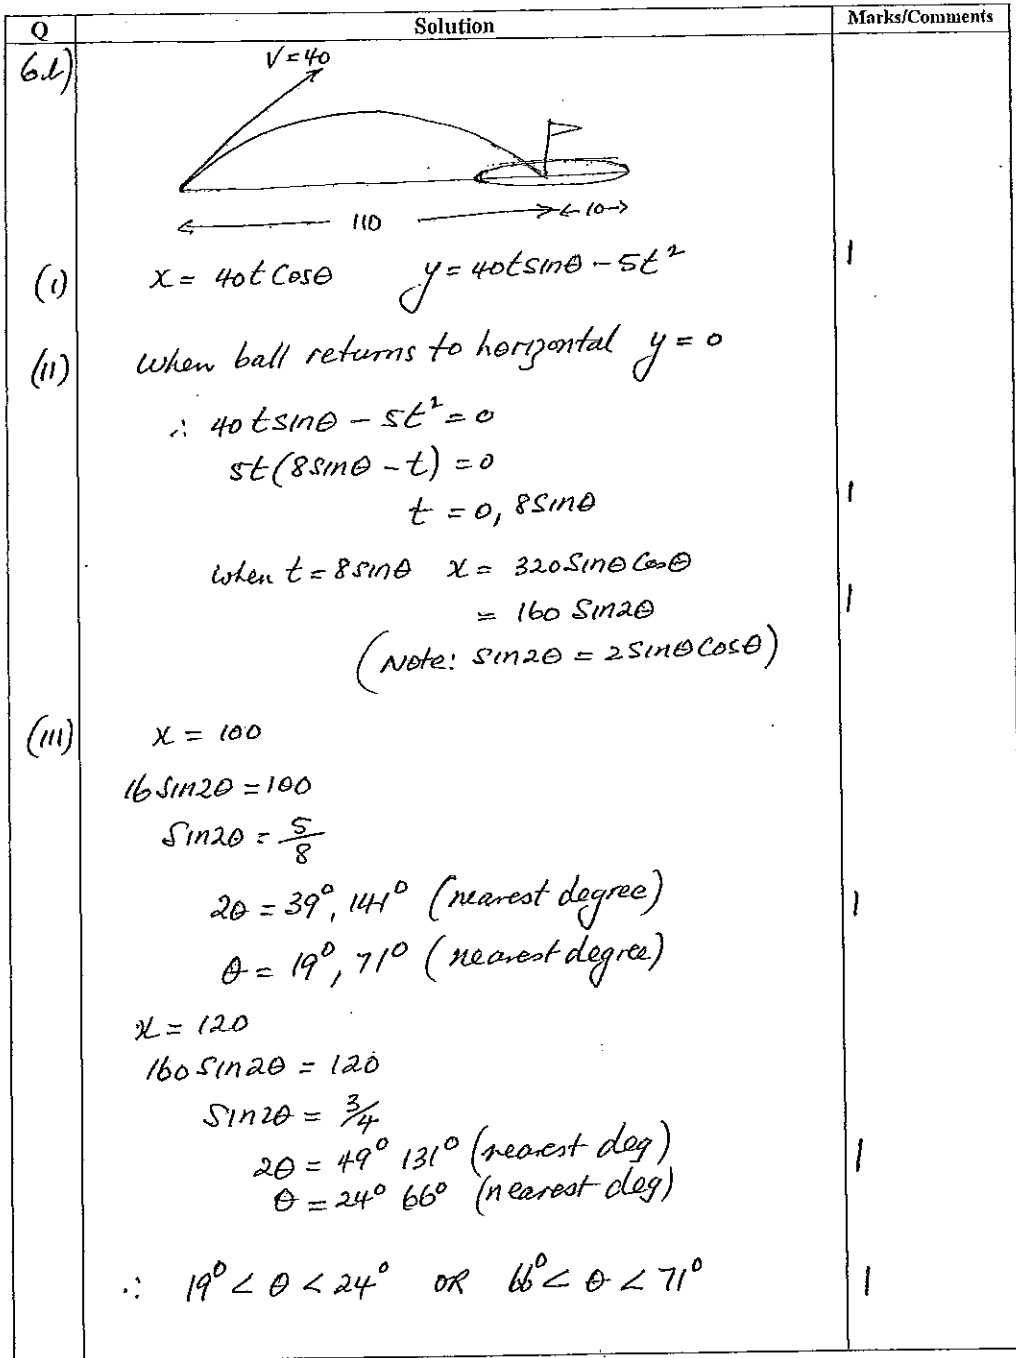 Q Solution Marks/Comments
6.b)
V=40
110 10
(i) x = 40t Cosθ y = 40tsinθ - 5t² 1
(ii) When ball returns to horizontal y = 0
∴ 40tsinθ - 5t² = 0
5t(8sinθ - t) = 0
t = 0, 8sinθ 1
When t = 8sinθ x = 320Sinθ Cosθ
= 160 Sin2θ 1
(Note: Sin2θ = 2SinθCosθ)
(iii) x = 100
16 Sin2θ = 100
Sin2θ = 5/8
2θ = 39°, 141° (nearest degree) 1
θ = 19°, 71° (nearest degree)
x = 120
160 Sin2θ = 120
Sin2θ = 3/4
2θ = 49° 131° (nearest deg) 1
θ = 24° 66° (nearest deg)
∴ 19° < θ < 24° OR 66° < θ < 71° 1